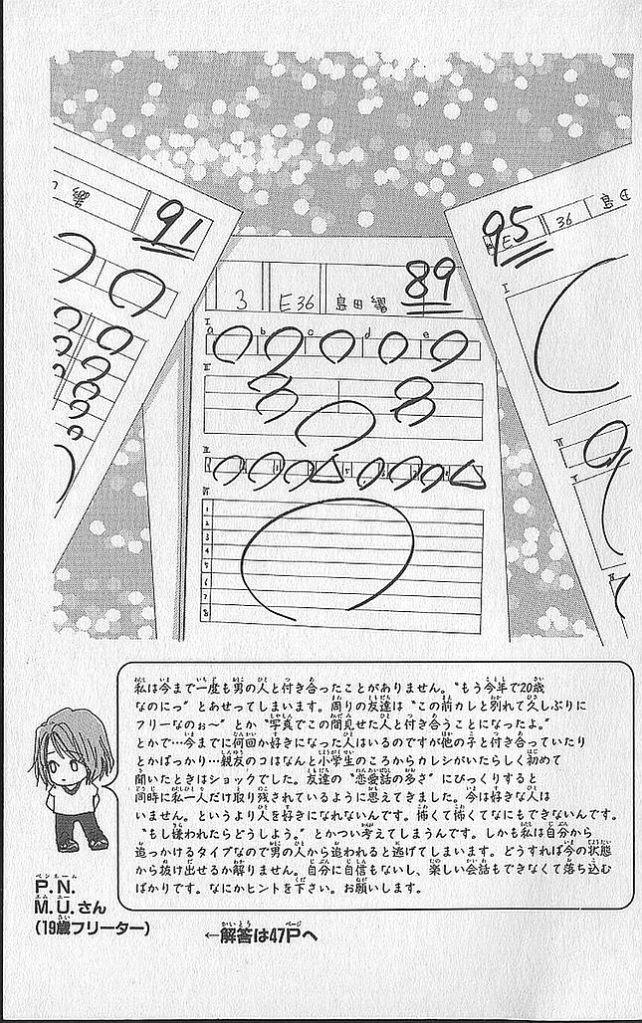 91
95
E
36
島田
89
3
E36
島田
I
a b c d e
II
III
IV
1
2
3
4
5
6
7
8
I
II
私は今まで一度も男の人と付き合ったことがありません。"もう今年で20歳
なのにっ"とあせってしまいます。周りの友達は"この前カレと別れて久しぶりに
フリーなのぉ〜"とか"写真でこの間見せた人と付き合うことになったよ。"
とかで…今までに何回か好きになった人はいるのですが他の子と付き合っていたり
とかばっかり…親友のコはなんと小学生のころからカレシがいたらしく初めて
聞いたときはショックでした。友達の"恋愛話の多さ"にびっくりすると
同時に私一人だけ取り残されているように思えてきました。今は好きな人は
いません。というより人を好きになれないんです。怖くて怖くてなにもできないんです。
"もし嫌われたらどうしよう。"とかつい考えてしまうんです。しかも私は自分から
追っかけるタイプなので男の人から追われると逃げてしまいます。どうすれば今の状態
から抜け出せるか解りません。自分に自信もないし、楽しい会話もできなくて落ち込む
ばかりです。なにかヒントを下さい。お願いします。
P.N.
M.U.さん
(19歳フリーター)
←解答は47Pへ